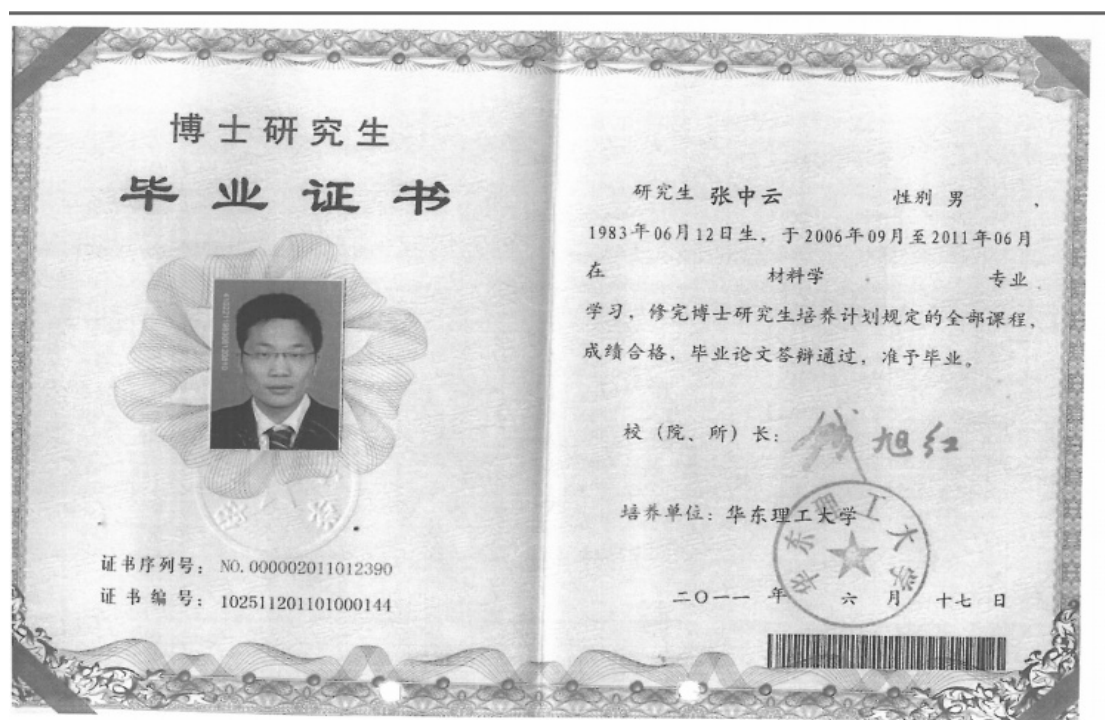 博士研究生
毕业证书
证书序列号：NO.000002011012390
证书编号：102511201101000144
研究生 张中云 性别 男 ，
1983年06月12日生，于2006年09月至2011年06月
在 材料学 专业
学习，修完博士研究生培养计划规定的全部课程，
成绩合格，毕业论文答辩通过，准予毕业。
校（院、所）长：钱旭红
培养单位：华东理工大学
华东理工大学
二〇一一 年 六 月 十七 日